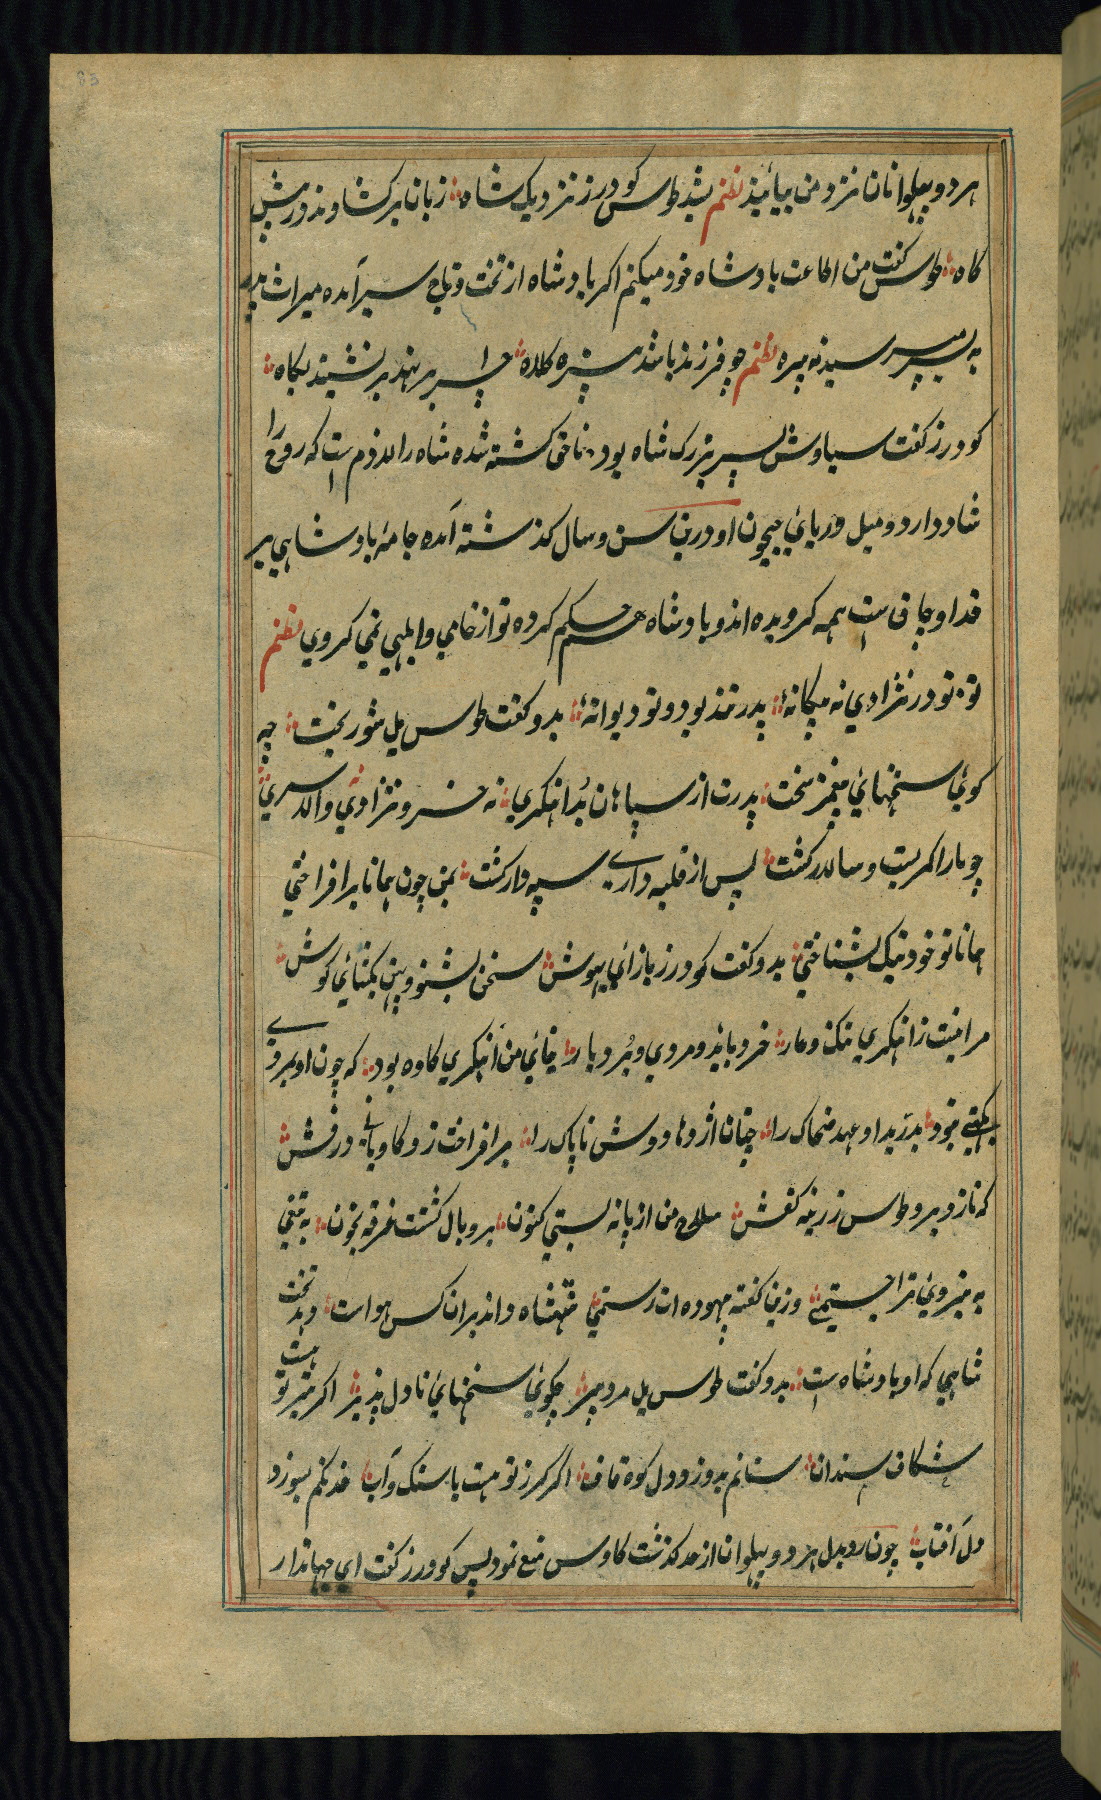 هر دو پهلوانان نزد من بیائید نظم بشد طوس کودرز نزدیک شاه زبان برکشادند در پیش
کاه طوس کفت من اطاعت بادشاه خود میکنم اکر بادشاه از تخت و تاج سیر آمده میراث
به پسر میرسد نه نبیره نظم چو فرزند باشد نبیره کلاه چرا بر نهد بر نشیند بکاه
کودرز کفت سیاوش پسر بزرک شاه بود ناحق کشته شده شاه را لازم است که روح را
شاد دارد و میل دریای جیحون او درین سن و سال کذشته آمده جامۀ بادشاهی بر
قد او چاق است همه کرویده اند و بادشاه حکم کرده تو از خامی و ابلهی نمی کروی نظم
تو نودر نژادی نه بیکانۀ پدر تند بود و تو دیوانۀ بدو کفت طوس یل شوربخت چه
کوئی سخنهای بیمغز سخت پدرت از سپاهان بد آهنکری نه خسرو نژادی و الاسری
چو مارا کمر بست و سالار کشت پس از قلبه داری سپه دار کشت بمن چون همانا برافراختی
همانا تو خود نیک بشناختی بدو کفت کودرز بازآی بهوش سخن بشنو و پهن بکشای کوش
مرا نیست زآهنکری ننک و عار خرد باید و مردی و بردبار نیای من آهنکری کاوه بود که چون او
بکیتی نبود بدرید او عهد ضحاک را چنان اژدها دوش ناپاک را برافراخت زو کاویانی درفش
که نازد برو طوس زرینه کفش سلاح من از پا نه بستی کنون برو بال کشتت غرقه بخون به تیغی
به نیروی ترا جستمی وزین کفته بیهوده ات رستمی شهنشاه داند بران کس هواست دهد تخت
شاهی که او بادشاه است بدو کفت طوس یل مرد پیر چکوئی سخنهای نادل پذیر اکر تیر تو هست
شکاف سندان سنانم بدوزد دل کوه قاف اکر کرز تو هست با سنک و آب خدنکم بسوزد
دل آفتاب چون ردبدل هر دو پهلوان از حد کذشت کاوس منع نمود پس کودرز کفت ای جهاندار